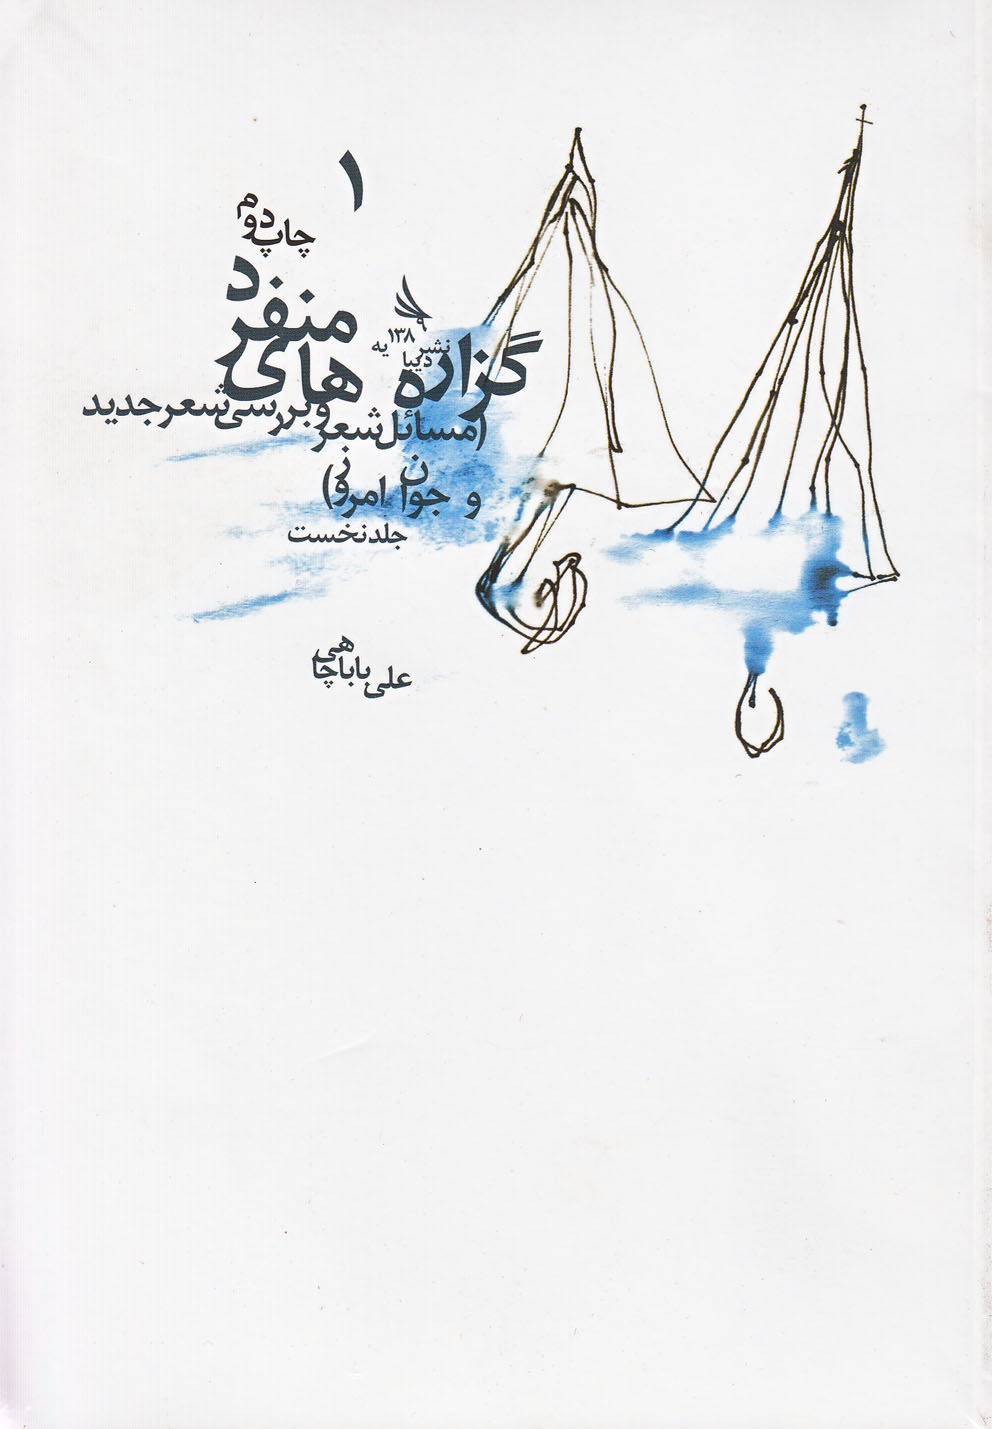 ۱
چاپ دوم
گزاره های منفرد
نشر دیبایه
۱۳۸۹
(مسائل شعر و بررسی شعر جدید
و جوان امروز)
جلد نخست
علی باباچاهی